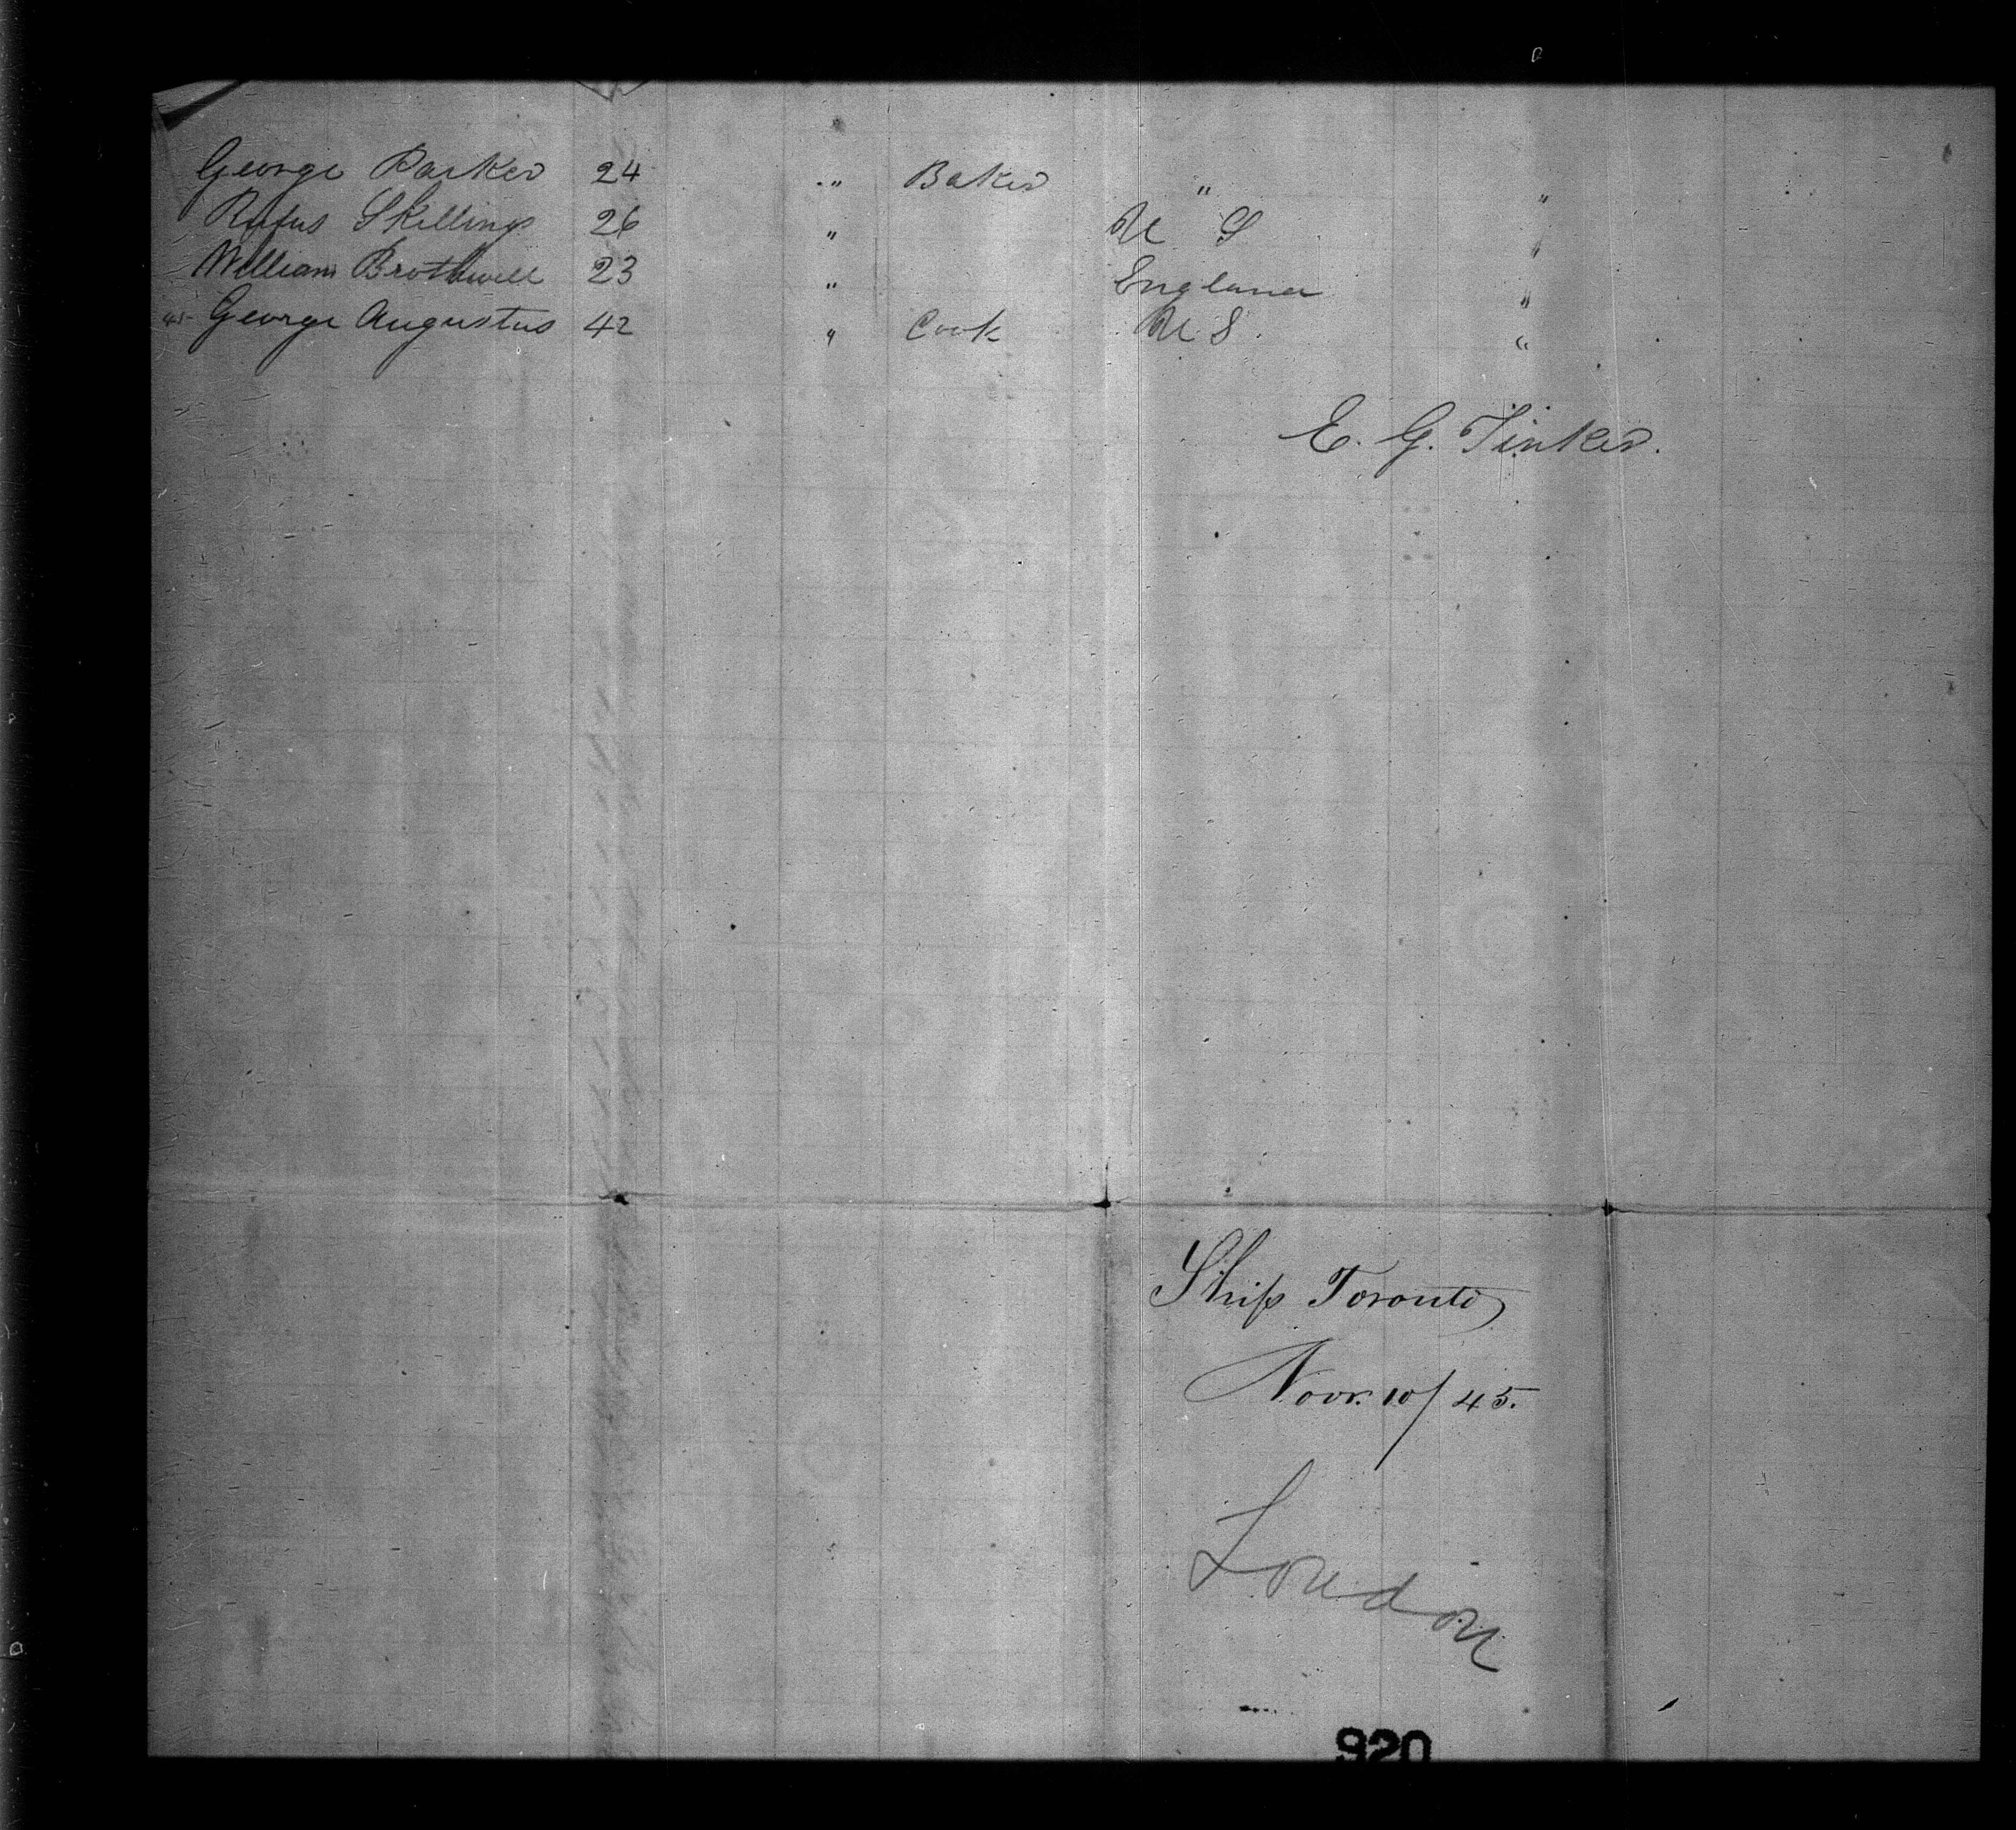 George Parker 24 " Baker " "
Rufus Skillings 26 " U S "
William Brothwell 23 " England "
45 George Augustus 42 " Cook U S. "
E. G. Tinker.
Ship Toronto
Novr. 10/45.
London
920